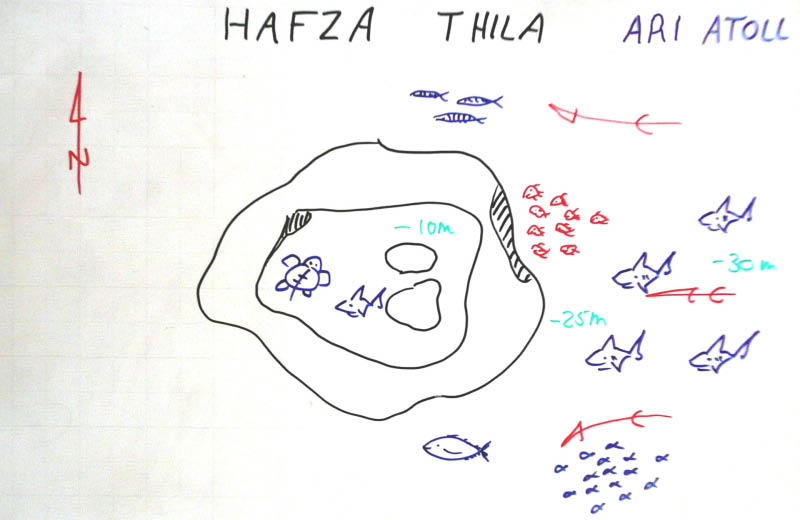 HAFZA THILA ARI ATOLL
N
-10m
-30m
-25m